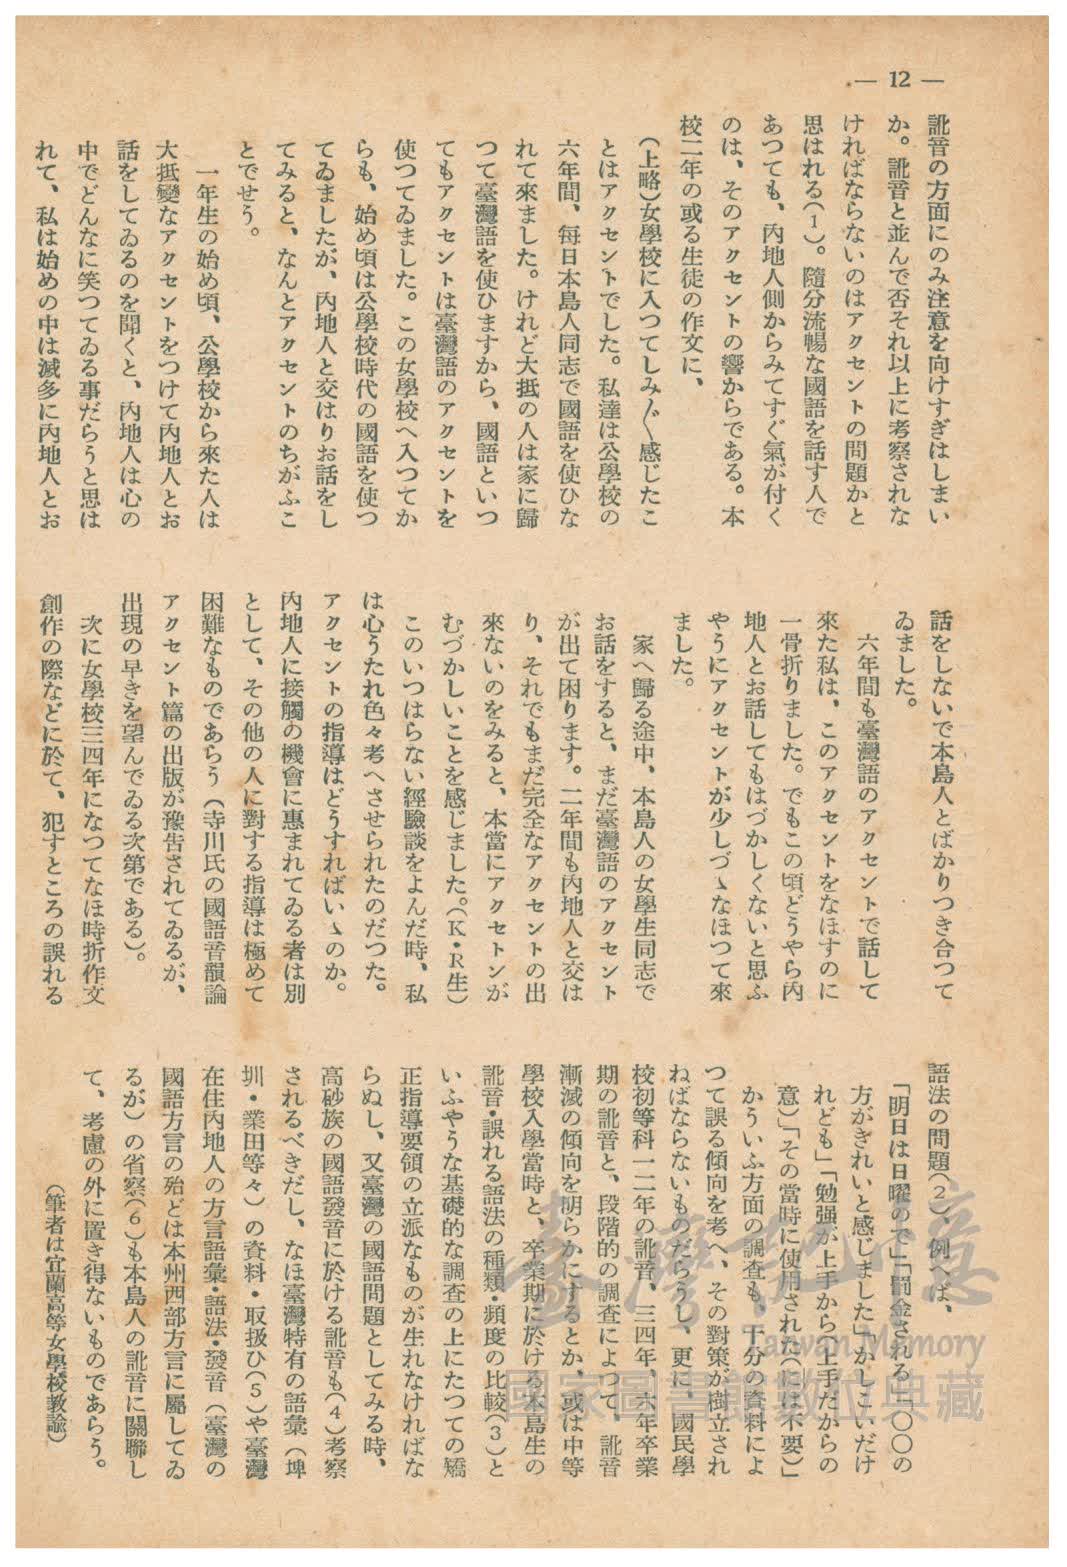 — 12 —
訛音の方面にのみ注意を向けすぎはしまい
か。訛音と並んで否それ以上に考察されな
ければならないのはアクセントの問題かと
思はれる(1)。隨分流暢な國語を話す人で
あつても、內地人側からみてすぐ氣が付く
のは、そのアクセントの響からである。本
校二年の或る生徒の作文に、
(上略)女學校に入つてしみ〴〵感じたこ
とはアクセントでした。私達は公學校の
六年間、每日本島人同志で國語を使ひな
れて來ました。けれど大抵の人は家に歸
つて臺灣語を使ひますから、國語といつ
てもアクセントは臺灣語のアクセントを
使つてゐました。この女學校へ入つてか
らも、始め頃は公學校時代の國語を使つ
てゐましたが、內地人と交はりお話をし
てみると、なんとアクセントのちがふこ
とでせう。
一年生の始め頃、公學校から來た人は
大抵變なアクセントをつけて內地人とお
話をしてゐるのを聞くと、內地人は心の
中でどんなに笑つてゐる事だらうと思は
れて、私は始めの中は滅多に內地人とお
話をしないで本島人とばかりつき合つて
ゐました。
六年間も臺灣語のアクセントで話して
來た私は、このアクセントをなほすのに
一骨折りました。でもこの頃どうやら內
地人とお話してもはづかしくないと思ふ
やうにアクセントが少しづゝなほつて來
ました。
家へ歸る途中、本島人の女學生同志で
お話をすると、まだ臺灣語のアクセント
が出て困ります。二年間も內地人と交は
り、それでもまだ完全なアクセントの出
來ないのをみると、本當にアクセトンが
むづかしいことを感じました。(K・R生)
このいつはらない經驗談をよんだ時、私
は心うたれ色々考へさせられたのだつた。
アクセントの指導はどうすればいゝのか。
內地人に接觸の機會に惠まれてゐる者は別
として、その他の人に對する指導は極めて
困難なものであらう(寺川氏の國語音韻論
アクセント篇の出版が豫告されてゐるが、
出現の早きを望んでゐる次第である)。
次に女學校三四年になつてなほ時折作文
創作の際などに於て、犯すところの誤れる
語法の問題(2)、例へば、
「明日は日曜ので」「罰金される」「〇〇の
方がきれいと感じました」「かしこいだけ
れども」「勉强が上手から(上手だからの
意)」「その當時に使用された(には不要)」
かういふ方面の調査も、十分の資料によ
つて誤る傾向を考へ、その對策が樹立され
ねばならないものだらうし、更に、國民學
校初等科一二年の訛音、三四年、六年卒業
期の訛音と、段階的の調査によつて、訛音
漸滅の傾向を明らかにするとか、或は中等
學校入學當時と、卒業期に於ける本島生の
訛音・誤れる語法の種類・頻度の比較(3)と
いふやうな基礎的な調査の上にたつての矯
正指導要領の立派なものが生れなければな
らぬし、又臺灣の國語問題としてみる時、
高砂族の國語發音に於ける訛音も(4)考察
されるべきだし、なほ臺灣特有の語彙(埤
圳・業田等々)の資料・取扱ひ(5)や臺灣
在住內地人の方言語彙・語法・發音(臺灣の
國語方言の殆どは本州西部方言に屬してゐ
るが)の省察(6)も本島人の訛音に關聯し
て、考慮の外に置き得ないものであらう。
(筆者は宜蘭高等女學校敎諭)
臺灣記憶
Taiwan Memory
國家圖書館數位典藏